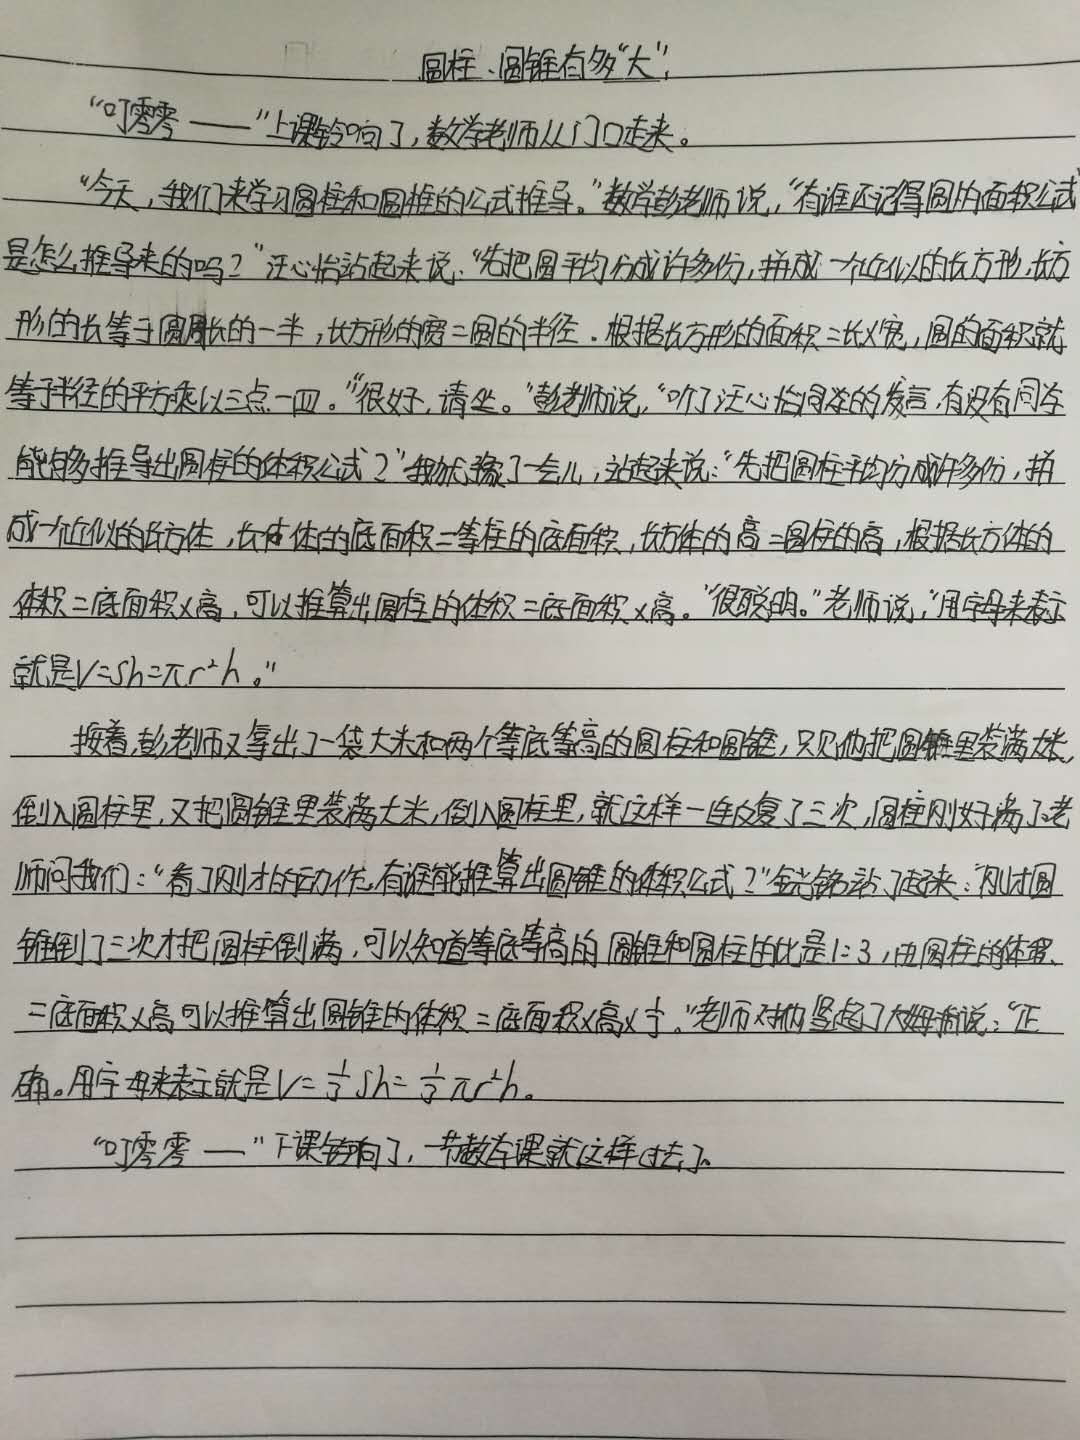 圆柱、圆锥有多“大”!
“叮零零——”上课铃响了,数学老师从门口走来。
“今天,我们来学习圆柱和圆椎的公式推导。”数学彭老师说,“有谁还记得圆的面积公式
是怎么推导来的吗?”汪心怡站起来说:“先把圆平均分成许多份,拼成一个近似的长方形,长方
形的长等于圆周长的一半,长方形的宽=圆的半径.根据长方形的面积=长×宽,圆的面积就
等于半径的平方乘以三点一四。”“很好,请坐。”彭老师说,“听了汪心怡同学的发言,有没有同学
能够推导出圆柱的体积公式?”我犹豫了一会儿,站起来说:“先把圆柱平均分成许多份,拼
成一个近似的长方体,长方体的底面积=等柱的底面积,长方体的高=圆柱的高,根据长方体的
体积=底面积×高,可以推算出圆柱的体积=底面积×高。”“很聪明。”老师说,“用字母来表示
就是V=Sh=πr²h。”
接着,彭老师又拿出了一袋大米和两个等底等高的圆柱和圆锥,只见他把圆锥里装满大米,
倒入圆柱里,又把圆锥里装满大米,倒入圆柱里,就这样一连反复了三次,圆柱刚好满了。老
师问我们:“看了刚才的动作,有谁能推算出圆锥的体积公式?”站了起来:“刚才圆
锥倒了三次才把圆柱倒满,可以知道等底等高的圆锥和圆柱的比是1:3,由圆柱的体积
=底面积×高可以推算出圆锥的体积=底面积×高×⅓。”老师对她竖起了大姆指说:“正
确。用字母来表示就是V=⅓Sh=⅓πr²h。
“叮零零——”下课铃响了,一节数学课就这样过去了。